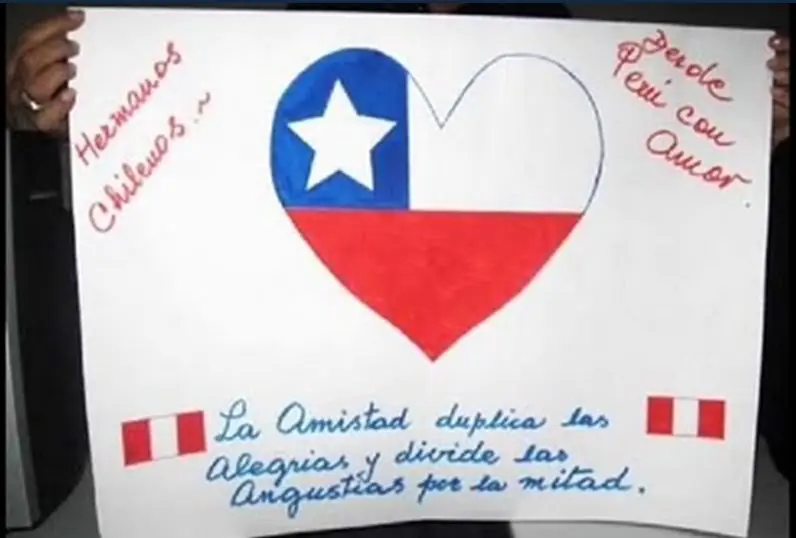 Hermanos
Chilenos.~
Desde
Perú con
Amor.
La Amistad duplica las
Alegrias y divide las
Angustias por la mitad.